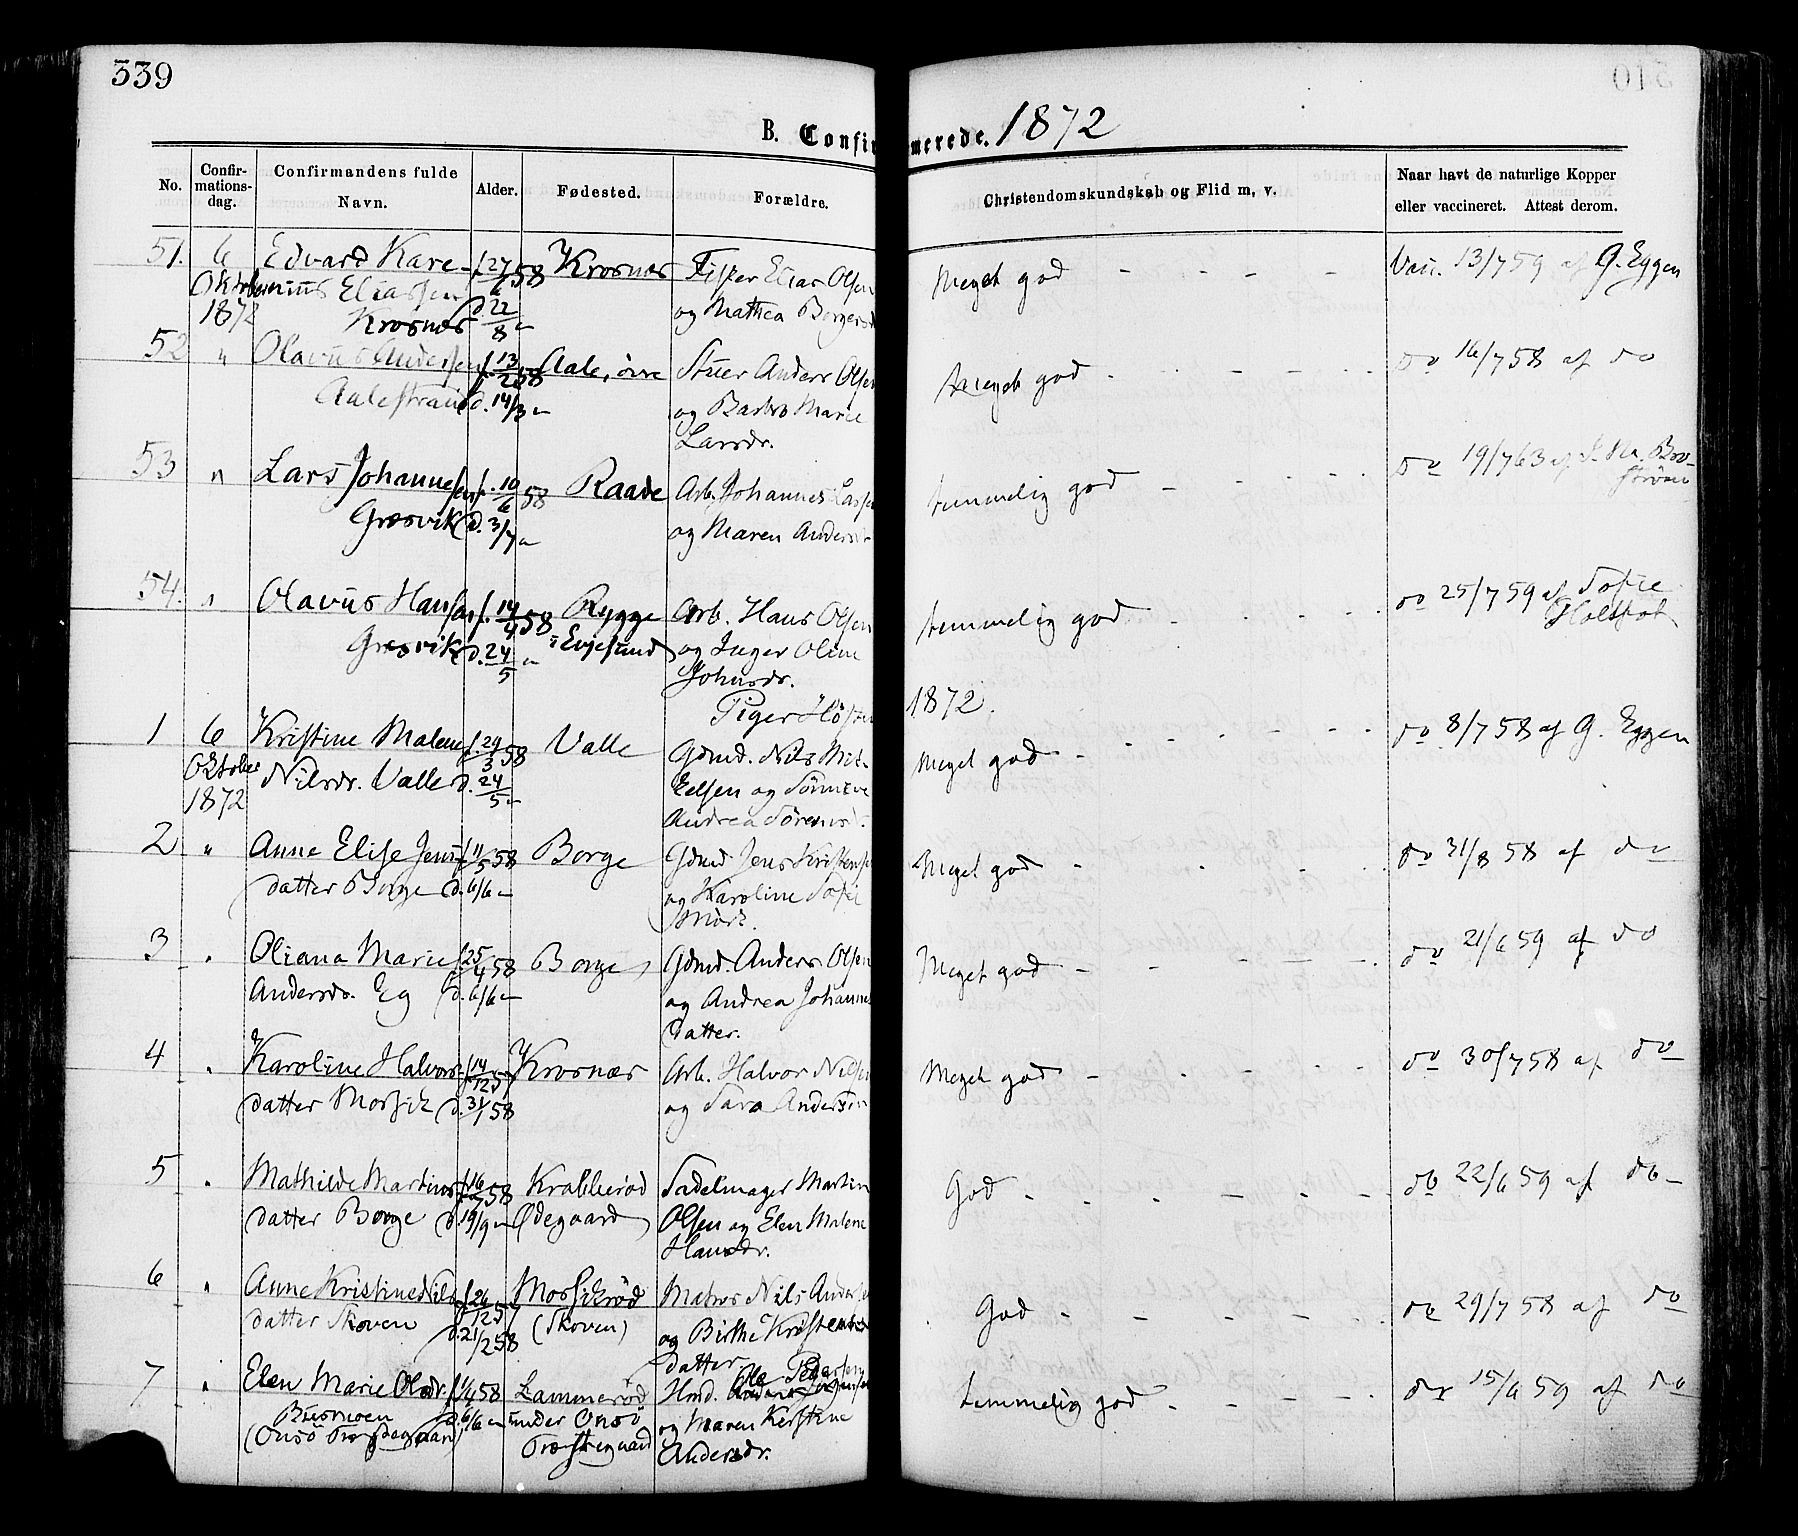 339
B. Confirmerede. 1872
No.
Confir-
mations-
dag.
Confirmandens fulde
Navn.
Alder.
Fødested.
Forældre.
Christendomskundskab og Flid m. v.
Naar havt de naturlige Kopper
eller vaccineret. Attest derom.
51. 6 Edvard Kare- f. 27/6 58 Krosnæs Fisker Elias Olsen Meget god - - - - Vacc. 13/7 59 af G. Eggen
Oktober nius Eliassen d. 22/8 " og Mathea Borgersd
1872 Krosnæs
52 " Olavus Andersen f. 13/2 58 Aale, øvre Stuer Anders Olsen Meget god - - - do 16/7 58 af do
Aalestrand d. 14/3 " og Barbro Marie
Larsdr.
53 " Lars Johannesen f. 10/6 58 Raade Arb. Johannes Larsen temmelig god - - - do 19/7 63 af
Græsvik d. 3/7 " og Maren Andersd
54. " Olavus Hansen f. 14/4 58 Rygge Arb. Hans Olsen temmelig god - - - do 25/7 59 af Sofie
Græsvik d. 24/5 " Evjesund og Inger Oline Holtfot
Johnsdr.
Piger Høsten 1872.
1 6 Kristine Malene f. 29/3 58 Valle Gdmd. Nils Mik- Meget god - - - do 8/7 58 af G. Eggen
Oktober Nilsdr. Valle d. 24/5 " kelsen og
1872 Andrea Sørensd.
2 " Anne Elise Jens- f. 11/5 58 Borge Gdmd Jens Kristensen Meget god - - - do 31/8 58 af do
datter Borge d. 6/6 " og Karoline Sofie
Mörk.
3 " Oliana Marie f. 25/4 58 Borge Gdmd. Anders Olsen Meget god - - - do 21/6 59 af do
Andersdr. Eg d. 6/6 " og Andrea Johannes
datter.
4 " Karoline Halvors- f. 14/12 57 Krosnæs Arb. Halvor Nilsen Meget god - - - do 30/7 58 af do
datter Mossik d. 31/1 58 og Sara Andersdr
5 " Mathilde Martins- f. 16/7 58 Krabberød Sadelmager Martin God - - - do 22/6 59 af do
datter Borge d. 19/9 " Ødegaard Olsen og Elen Malene
Hansdr.
6 " Anne Kristine Nils- f. 26/12 57 Mossikrød Matros Nils Andersen God - - - do 29/7 58 af do
datter Skoven d. 21/2 58 (Skoven) og Birthe Kristens
datter.
7 " Elen Marie Olsdr. f. 1/4 58 Lammerød Hmd. Ole Pedersen temmelig god - - - do 15/6 59 af do
d. 6/6 " under Onsö og Maren Kerstine
(Onsö Præstegaard) Præstegaard Andersdr.